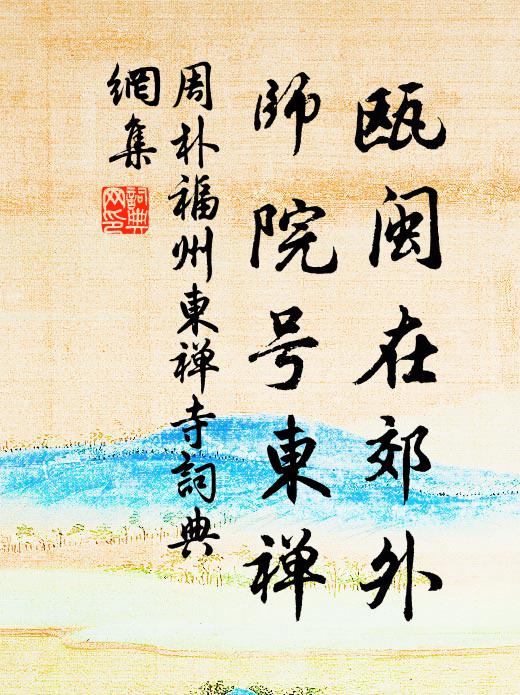 瓯闽在郊外
師院号東禅
周朴福州東禅寺詞典
網集
詞典
网印